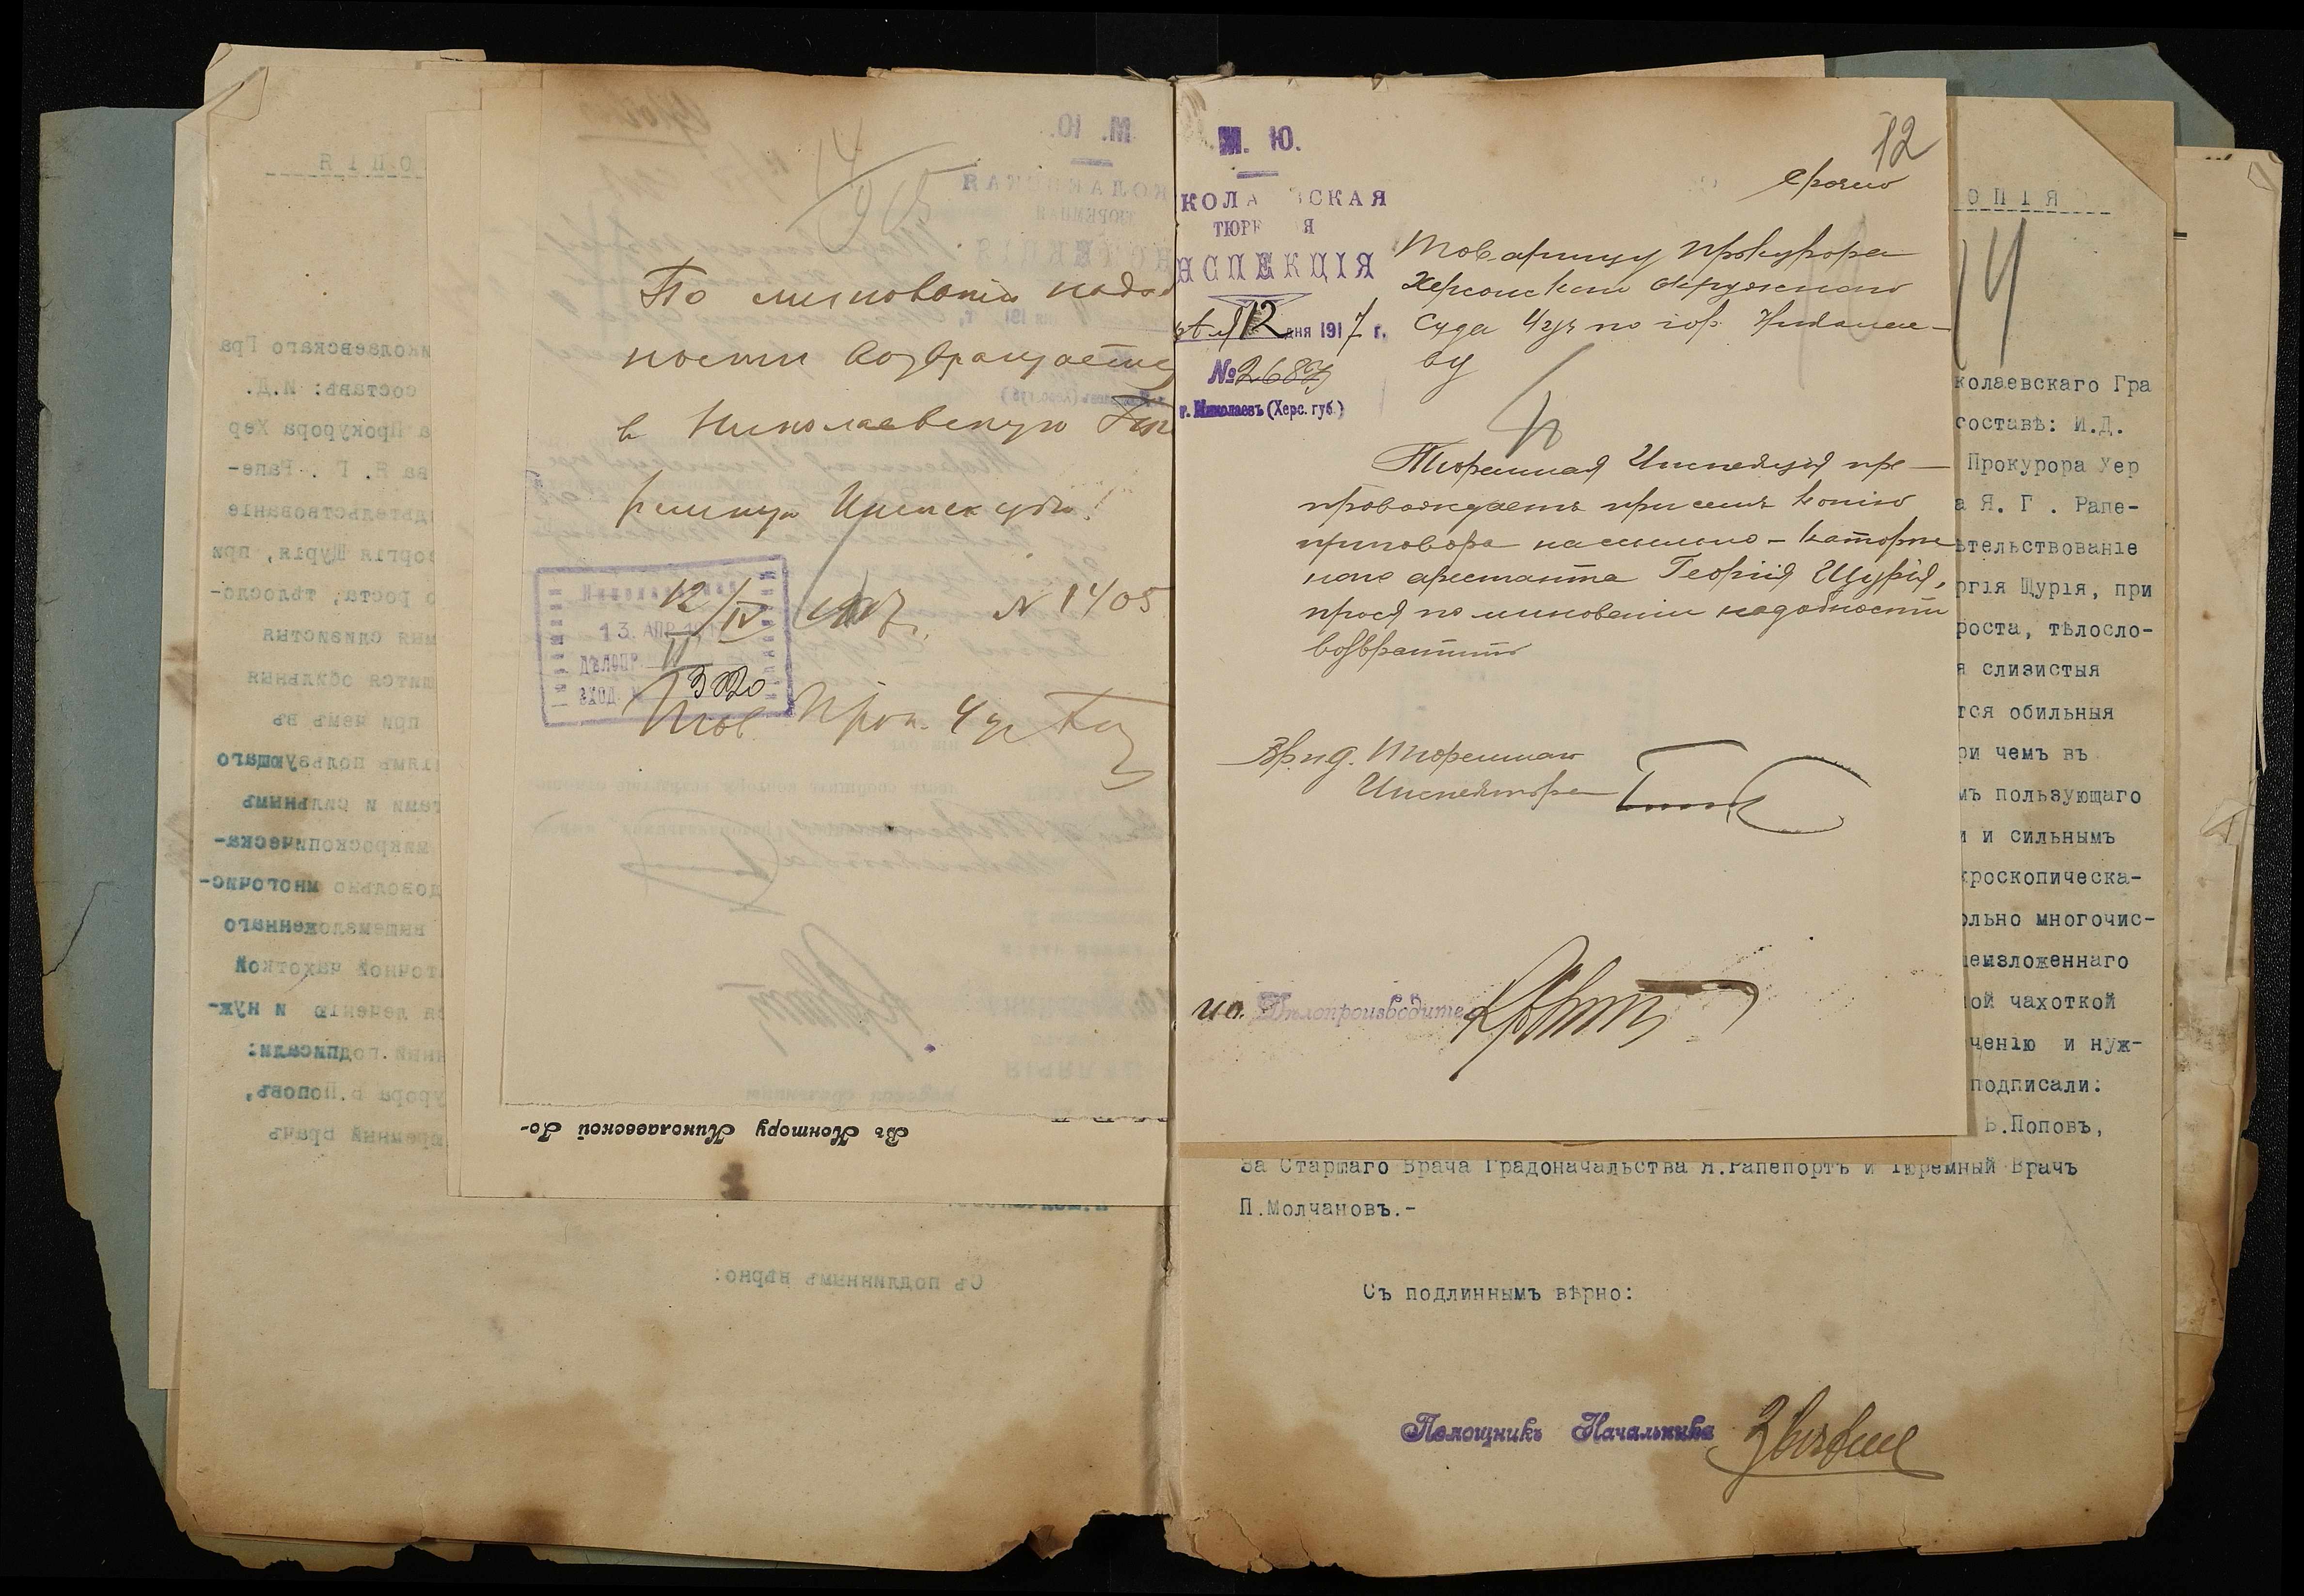 По миновании надоб
ности возвращается
в Николаевскую Тю
ремную Инспекцию.
12/IV 1917 г. № 1405
13. АПР. 191
ДѢЛОПР. II
ВХОД. № 3820
Тов. Прок. 4 уч.
Въ Контору Николаевской Го-
М. Ю.
КОЛА СКАЯ
ТЮРЕ Я
НСПЕКЦІЯ
12 дня 1917 г.
№ 2687
г. Николаевъ (Херс. губ.)
12
Срочно
Товарищу Прокурора
Херсонскаго Окружного
Суда 4 уч. по гор. Николае-
ву
Тюремная Инспекція пре-
провождаетъ при семъ копію
приговора ссыльно-каторж
наго арестанта Георгія Щурія,
прося по миновеніи надобности
возвратить
Врид. Тюремнаго
Инспектора
И.о. Дѣлопроизводите
О П І Я
14
колаевскаго Гра
составѣ: И.Д.
Прокурора Хер
а Я. Г . Рапе-
ѣтельствованіе
ргія Щурія, при
роста, тѣлосло-
я слизистыя
тся обильныя
ри чемъ въ
мъ пользующаго
и и сильнымъ
кроскопическа-
ольно многочис-
еизложеннаго
ой чахоткой
ченію и нуж-
подписали:
Б.Поповъ,
За Старшаго Врача Градоначальства Я.Рапепортъ и Тюремный Врачъ
П.Молчановъ.-
Съ подлиннымъ вѣрно:
Помощникъ Начальника